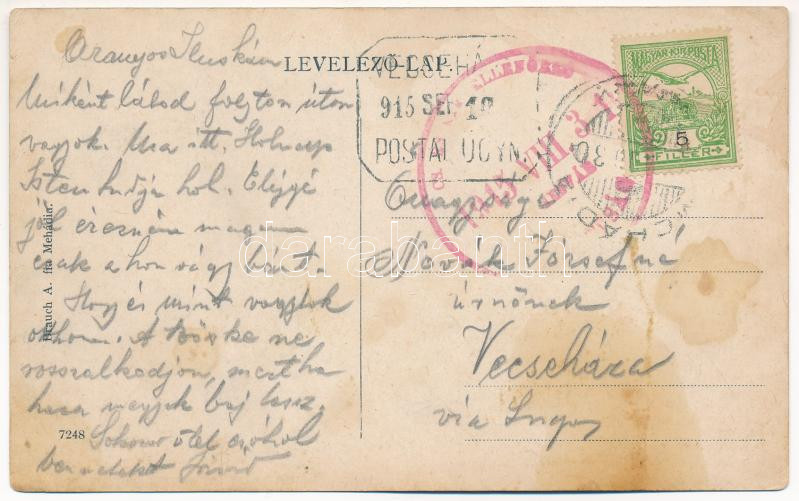 LEVELEZŐ-LAP.
Aranyos Iluskám
Miként látod folyton úton
vagyok. Ma itt. Holnap
Isten tudja hol. Eléggé
jól érezném magam
csak a honvágy bánt.
Hogy és mint vagytok
otthon. A Böske ne
rosszalkodjon, mert ha
haza megyek baj lesz.
Sokszor ölel csókol
benneteket
Brauch A. fia Mehádia.
7248
VECSEHÁ
915 SEP 12
POSTAI ÜGYN.
ELLENŐRZ
1915 VIII 3
MAGYAR KIR. POSTA
5
FILLÉR
Őnagysága
Novák Józsefné
úrnőnek
Vecseháza
via Lugos
darabanth